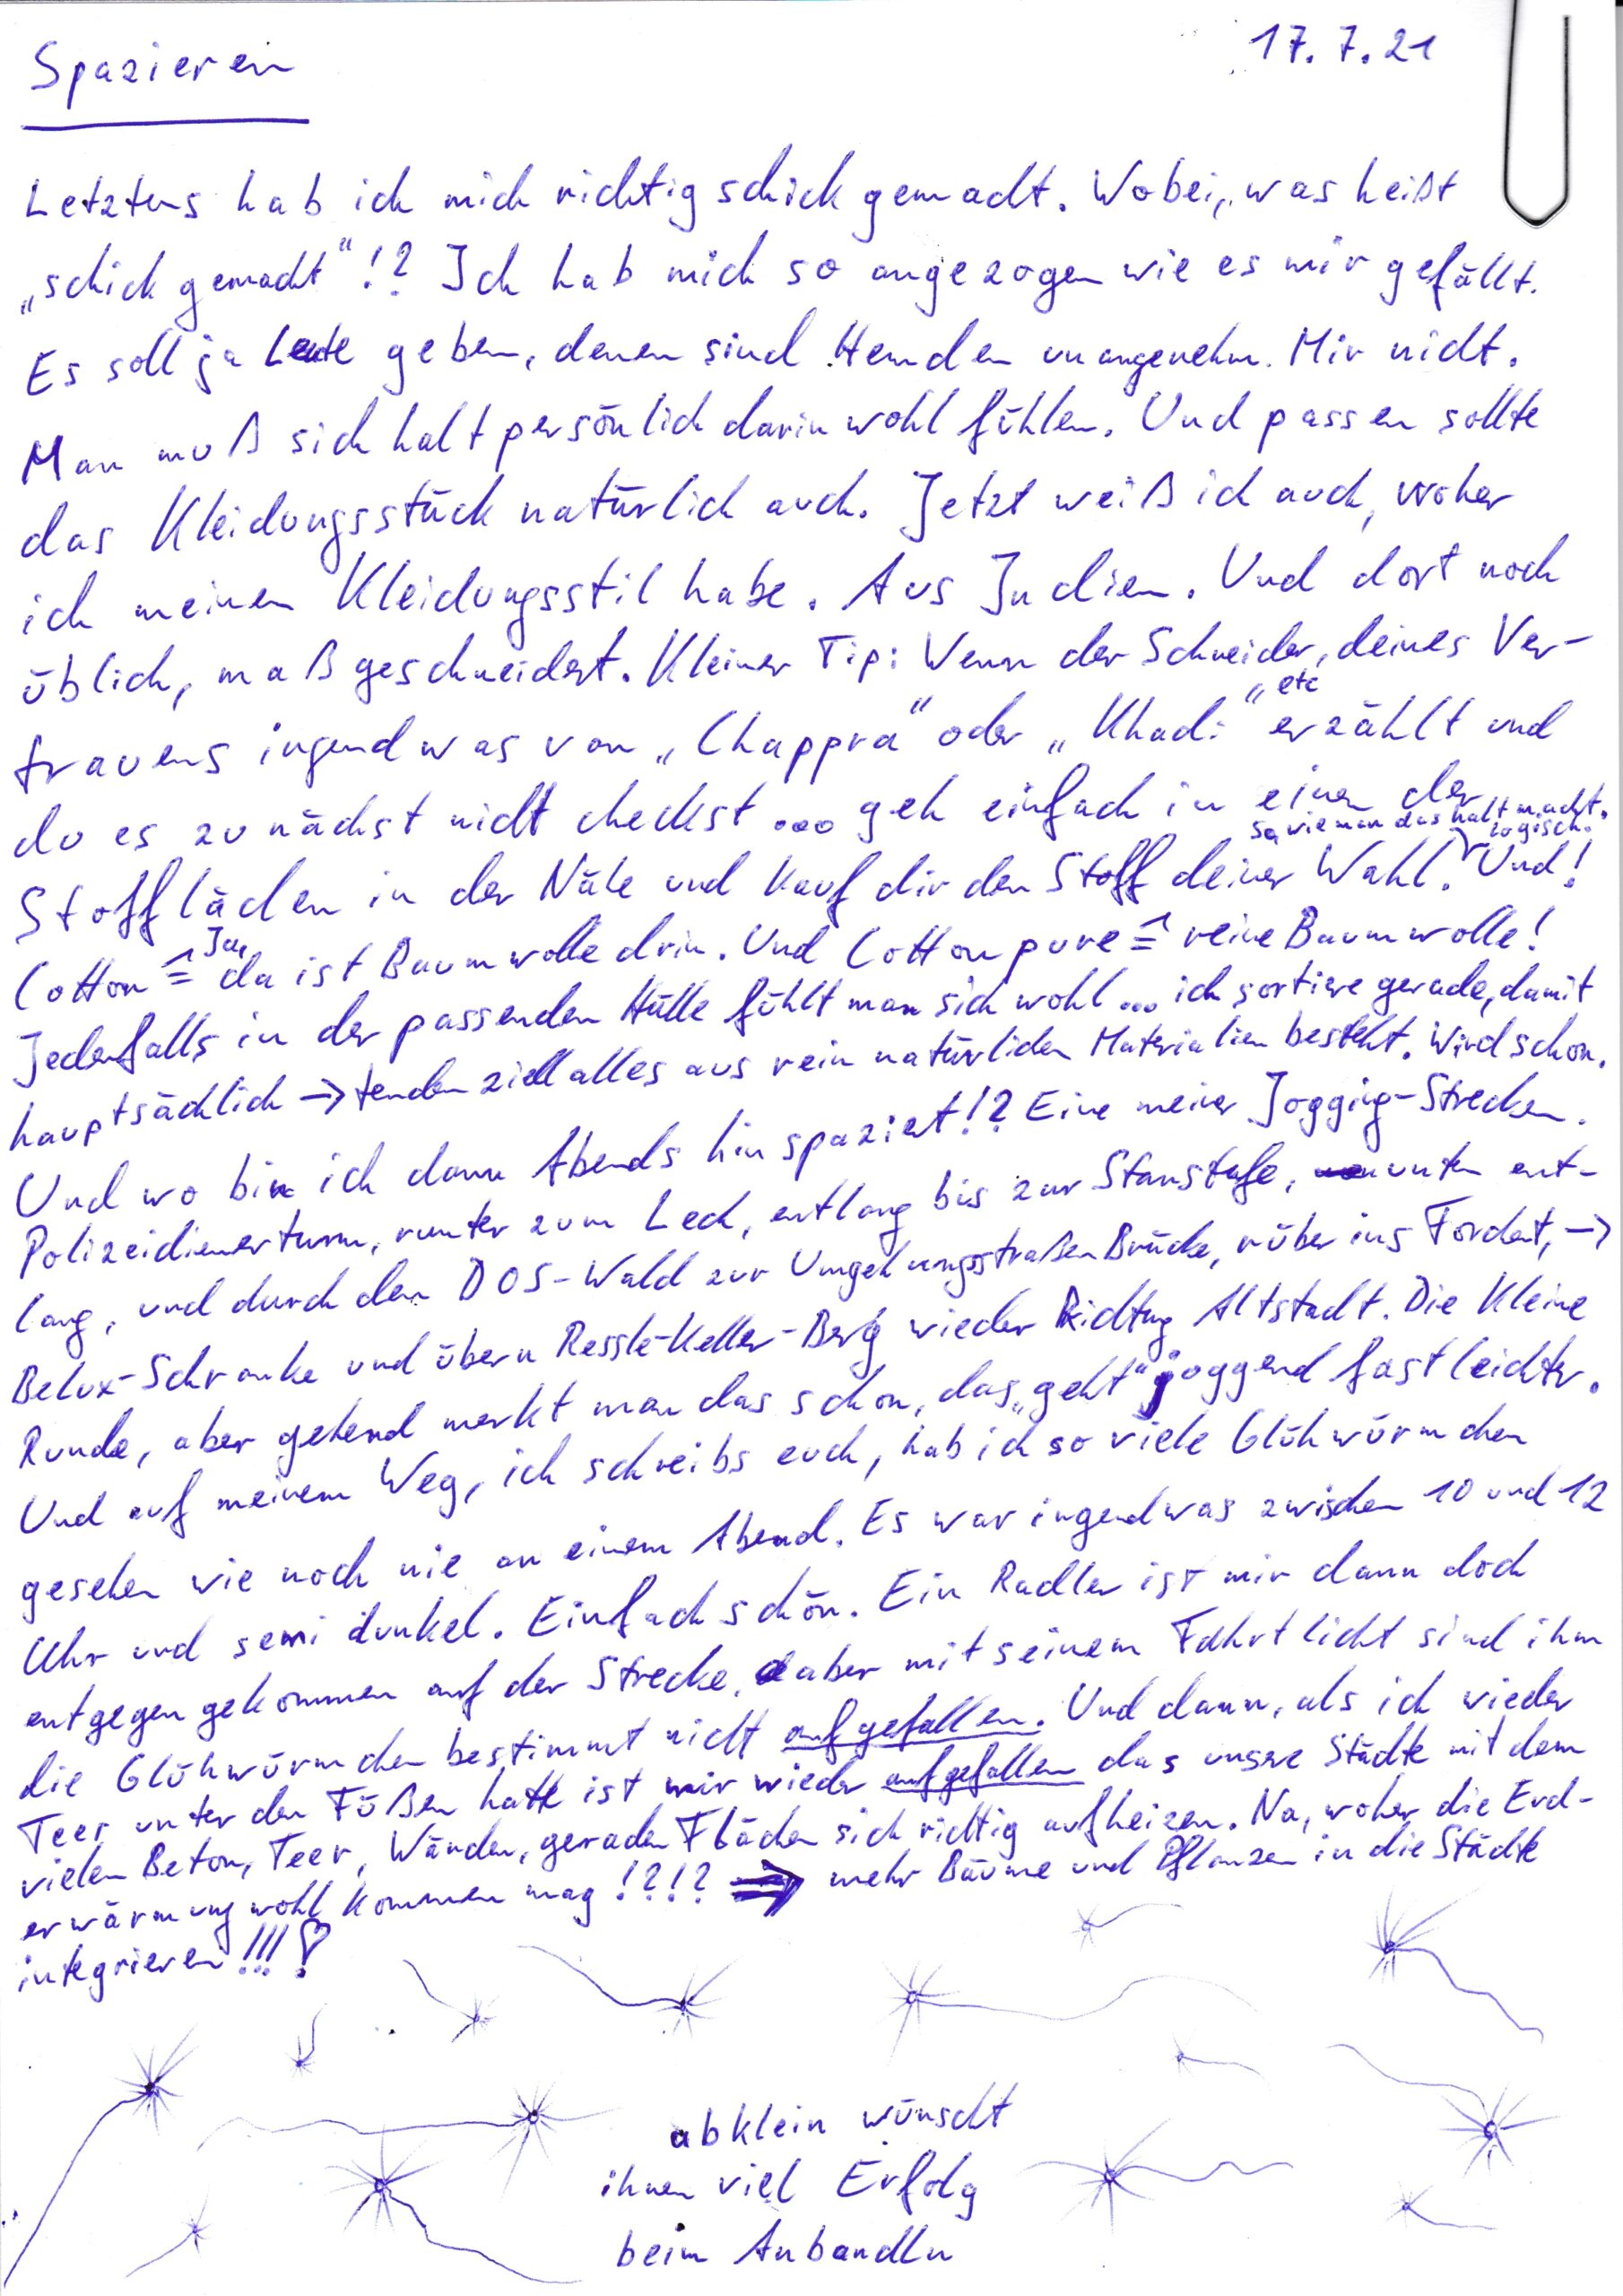 Spazieren
17.7.21
Letztens hab ich mich richtig schick gemacht. Wobei, was heißt
„schick gemacht“!? Ich hab mich so angezogen wie es mir gefällt.
Es soll ja Leute geben, denen sind Hemden unangenehm. Mir nicht.
Man muß sich halt persönlich darin wohl fühlen. Und passen sollte
das Kleidungsstück natürlich auch. Jetzt weiß ich auch, woher
ich meinen Kleidungsstil habe. Aus Indien. Und dort noch
üblich, maßgeschneidert. Kleiner Tip: Wenn der Schneider, deines Ver-
trauens irgendwas von „Chappra“ oder „Khadi“ etc erzählt und
du es zunächst nicht checkst ... geh einfach in einen der
so, wie man das halt macht. logisch.
Stoffläden in der Nähe und kauf dir den Stoff deiner Wahl. Und!
Cotton ≙ Ja, da ist Baumwolle drin. Und Cotton pure ≙ reine Baumwolle!
Jedenfalls in der passenden Hülle fühlt man sich wohl ... ich sortiere gerade, damit
hauptsächlich → tendenziell alles aus rein natürlichen Materialien besteht. Wird schon.
Und wo bin ich dann Abends hin spaziert!? Eine meiner Jogging-Strecken.
Polizeidienerturm, runter zum Lech, entlang bis zur Staustufe, unten ent-
lang, und durch den DOS-Wald zur UmgehungsstraßenBrücke, rüber ins Forchet, →
Belux-Schranke und übern Ressle-Keller-Berg wieder Richtung Altstadt. Die Kleine
Runde, aber gehend merkt man das schon, das „geht“ joggend fast leichter.
Und auf meinem Weg, ich schreibs euch, hab ich so viele Glühwürmchen
gesehen wie noch nie an einem Abend. Es war irgendwas zwischen 10 und 12
Uhr und semi dunkel. Einfach schön. Ein Radler ist mir dann doch
entgegen gekommen auf der Strecke, aber mit seinem Fahrtlicht sind ihm
die Glühwürmchen bestimmt nicht aufgefallen. Und dann, als ich wieder
Teer unter den Füßen hatte ist mir wieder aufgefallen das unsre Städte mit dem
vielen Beton, Teer, Wänden, geraden Flächen sich richtig aufheizen. Na, woher die Erd-
erwärmung wohl kommen mag!?!? ⇒ mehr Bäume und Pflanzen in die Städte
integrieren!!!
abklein wünscht
ihnen viel Erfolg
beim Anbandln